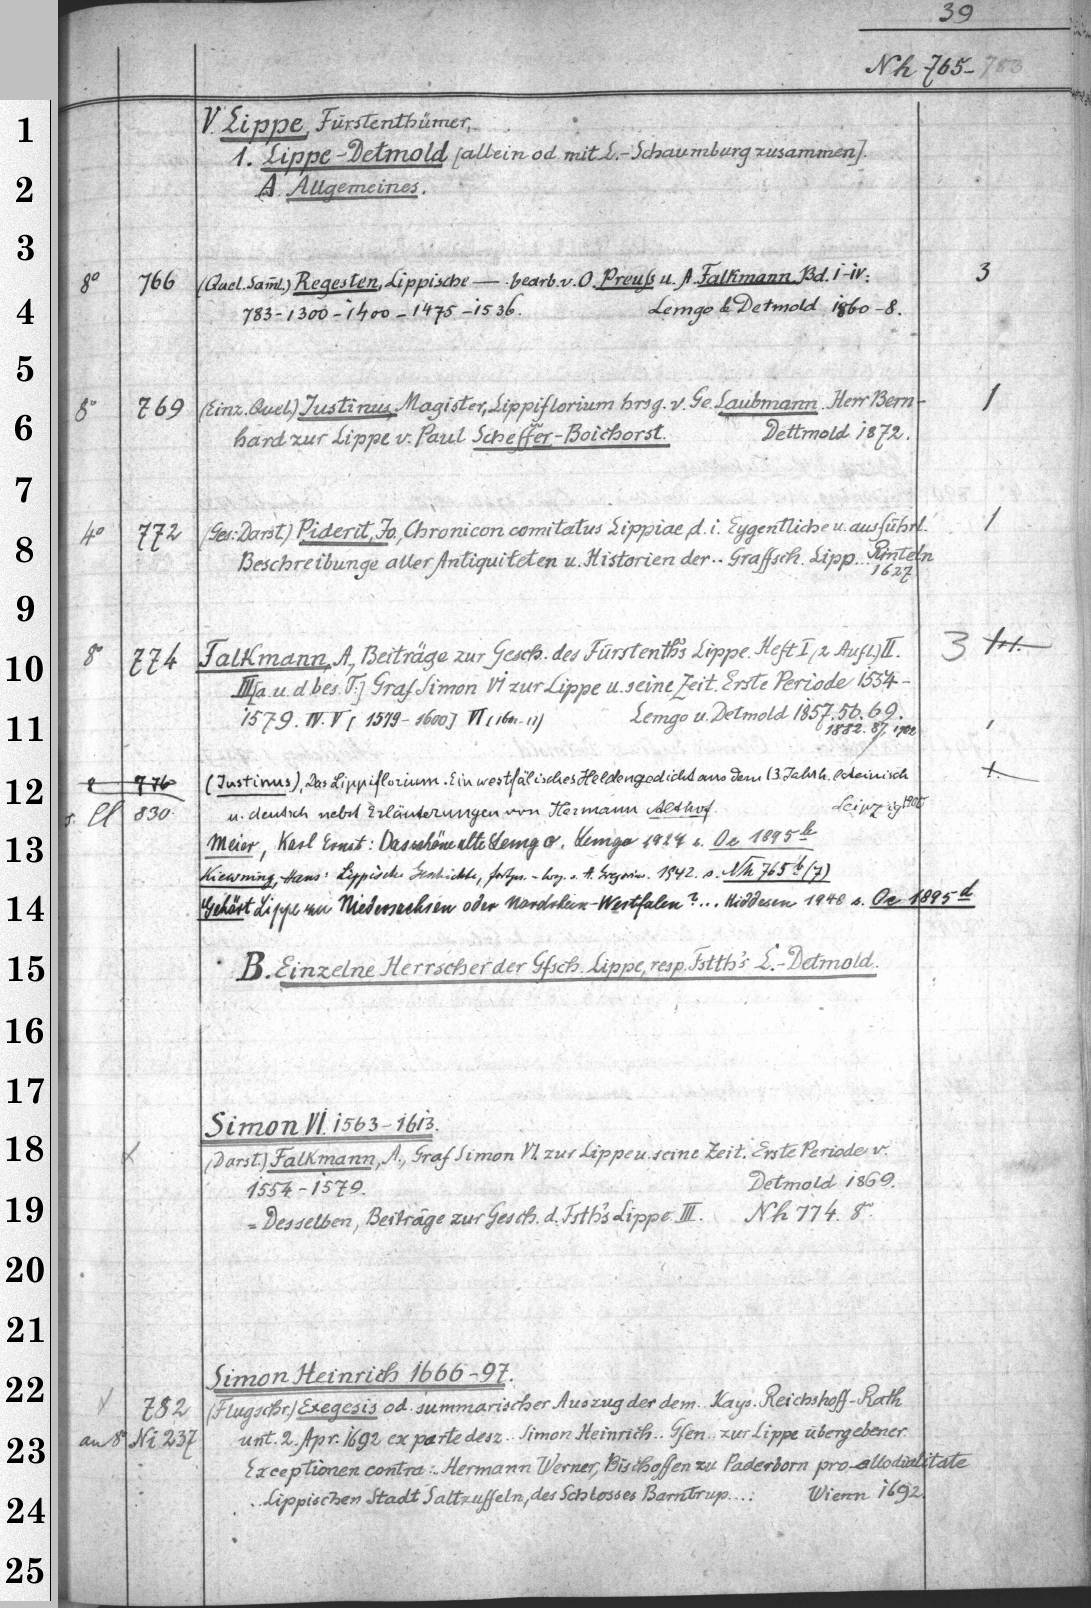 39
Nh 765-783
V. Lippe, Fürstenthümer,
1. Lippe-Detmold [allein od. mit L.-Schaumburg zusammen].
A. Allgemeines.
8° 766 (Quel. Saml.) Regesten, Lippische — bearb. v. O. Preuß u. A. Falkmann. Bd. I-IV. 3
783-1300-1400-1475-1536. Lemgo & Detmold 1860-8.
8° 769 (Einz. Quel.) Justinus, Magister, Lippiflorium hrsg. v. Ge. Laubmann. Herr Bern- 1
hard zur Lippe v. Paul Scheffer-Boichorst. Dettmold 1872.
4° 772 (Ges. Darst.) Piderit, Jo., Chronicon comitatus Lippiae d. i. Eygentliche u. ausführl. 1
Beschreibunge aller Antiquiteten u. Historien der .. Graffsch. Lipp... Rinteln
1627.
8° 774 Falkmann, A., Beiträge zur Gesch. des Fürstenth's Lippe. Heft I (2 Aufl.) II. 3
III [a. u. d. bes. T:] Graf Simon VI zur Lippe u. seine Zeit. Erste Periode 1554-
1579. IV. V [1579-1600] VI (1600-13) Lemgo u. Detmold 1857. 56. 69.
1882. 87. 1902
8 776 (Justinus), Das Lippiflorium. Ein westfälisches Heldengedicht aus dem 13. Jahrh. lateinisch 1.
s. Cl 830. u. deutsch nebst Erläuterungen von Hermann Althof. Leipzig 1900
Meier, Karl Ernst: Das schöne alte Lemgo. Lemgo 1927 s. Oc 1895 b
Kiewning, Hans: Lippische Geschichte, hrsg. v. A. Gregorius. 1942. s. Nh 765 b (7)
Gehört Lippe zu Niedersachsen oder Nordrhein-Westfalen?... Hiddesen 1948 s. Oc 1895 d
B. Einzelne Herrscher der Gfsch. Lippe, resp. Fstth's L.-Detmold.
Simon VI. 1563-1613.
(Darst.) Falkmann, A., Graf Simon VI. zur Lippe u. seine Zeit. Erste Periode v.
1554-1579. Detmold 1869.
= Desselben, Beiträge zur Gesch. d. Fsth's Lippe. III. Nh 774. 8°.
Simon Heinrich 1666-97.
782 (Flugschr.) Exegesis od. summarischer Auszug der dem .. Kays. Reichshoff-Rath
an 8° Ni 237 unt. 2. Apr. 1692 ex parte desz .. Simon Heinrich .. Gfen .. zur Lippe übergebener
Exceptionen contra .. Hermann Werner, Bischoffen zu Paderborn pro allodialitate
.. Lippischen Stadt Saltzuffeln, des Schlosses Barntrup...: Wienn 1692.
1
2
3
4
5
6
7
8
9
10
11
12
13
14
15
16
17
18
19
20
21
22
23
24
25